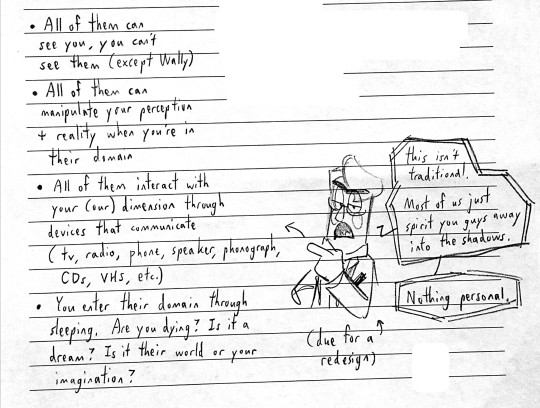 • All of them can
see you, you can't
see them (except Wally)
• All of them can
manipulate your perception
+ reality when you're in
their domain
• All of them interact with
your (our) dimension through
devices that communicate
(tv, radio, phone, speaker, phonograph,
CDs, VHS, etc.)
• You enter their domain through
sleeping. Are you dying? Is it a
dream? Is it their world or your
imagination?
this isn't
traditional!
Most of us just
spirit you guys away
into the shadows.
Nothing personal.
(due for a
redesign)